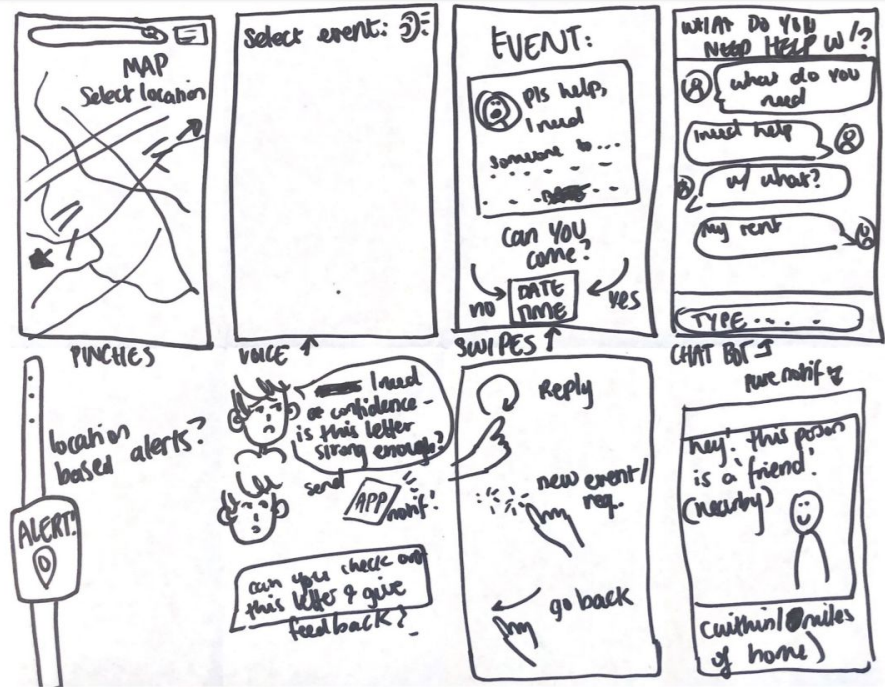 MAP
Select location
PINCHES
Select event:
VOICE
EVENT:
pls help,
I need
someone to ...
can you
come?
no
DATE
TIME
yes
SWIPES
WHAT DO YOU
NEED HELP W/?
what do you
need
I need help
w/ what?
My rent
TYPE.....
CHAT BOT
location
based alerts?
ALERT!
I need
confidence -
is this letter
strong enough?
send
APP
notif!
can you check out
this letter & give
feedback?
Reply
new event/
req.
go back
notif
hey! this person
is a 'friend'.
(nearby)
(within 1 miles
of home)